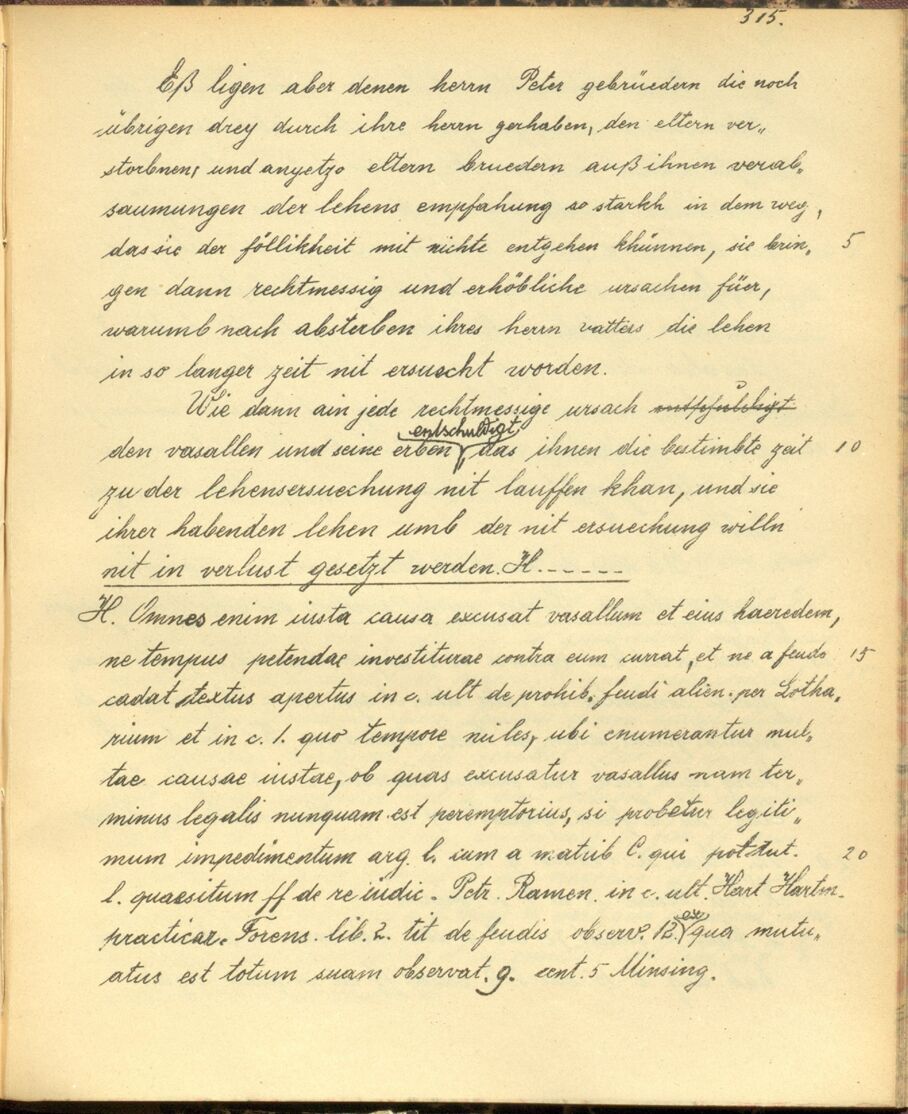 315.
Eß ligen aber denen herrn Peter gebrüedern die noch
übrigen drey durch ihre herrn gerhaben, den eltern ver„
storbnen, und anyetzo eltern bruedern auß ihnen verab„
saumungen der lehens empfahung so starkh in dem weg,
das sie der föllikheit mit nichte entgehen khünnen, sie brin„ 5
gen dann rechtmessig und erhöbliche ursachen füer,
warumb nach absterben ihres herrn vatters die lehen
in so langer zeit nit ersuecht worden.
Wie dann ain jede rechtmessige ursach entschuldigt
entschuldigt
den vasallen und seine erben, das ihnen die bestimbte zeit 10
zu der lehensersuechung nit lauffen khan, und sie
ihrer habenden lehen umb der nit ersuechung willn
nit in verlust gesetzt werden. H.------
H. Omnes enim iusta causa excusat vasallum et eius haeredem,
ne tempus petendae investiturae contra eum currat, et ne a feudo 15
cadat, textus apertus in c. ult de prohib. feudi alien. per Lotha„
rium et in c. 1. quo tempore miles, ubi enumerantur mul„
tae causae iustae, ob quas excusatur vasallus nam ter„
minus legalis nunquam est peremptorius, si probetur legiti„
mum impedimentum arg. l. cum a matrib C. qui 20
l. quaesitum ff de re iudic. Petr. Ramen. in c. ult. Hart Hartm.
practicar. Forens. lib. 2. tit de feudis observ. 12. ex qua mutu„
atus est totum suam observat. 9. cent. 5 Minsing.